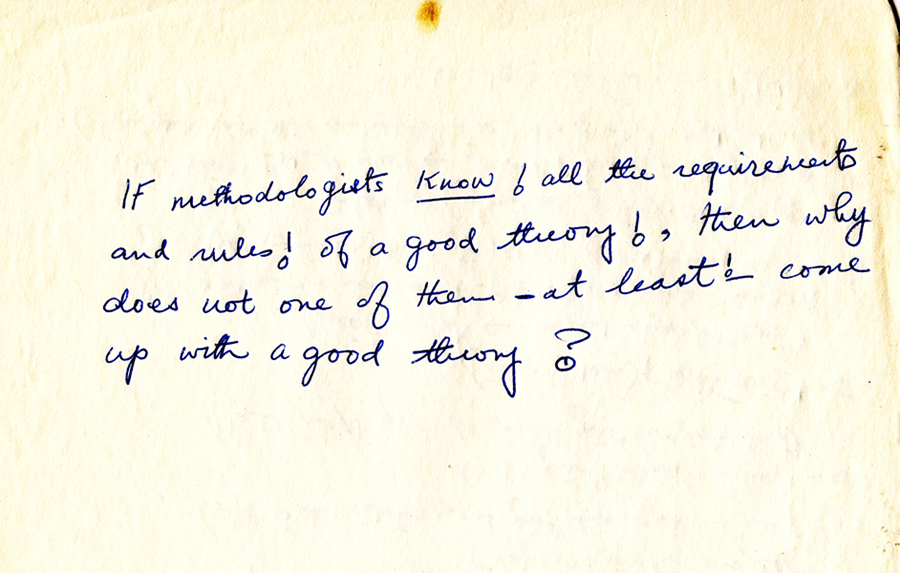 IF methodologists Know ! all the requirements
and rules! of a good theory!, then why
does not one of them – at least! – come
up with a good theory ?